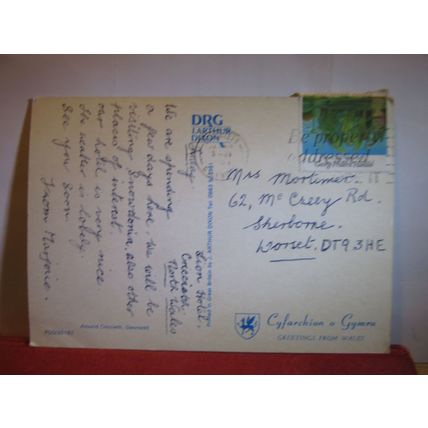 DRG
J. ARTHUR
DIXON
Be properly
addressed
Lion Hotel,
Criccieth
North Wales
Friday
We are spending
a few days here. We will be
visiting Snowdonia, also other
places of interest.
our hotel is very nice.
The weather is lovely.
See you soon.
From Marjorie.
Mrs Mortimer
62, McCreery Rd.
Sherborne.
Dorset, DT9 3HE
Cyfarchion o Gymru
GREETINGS FROM WALES
Around Criccieth, Gwynedd